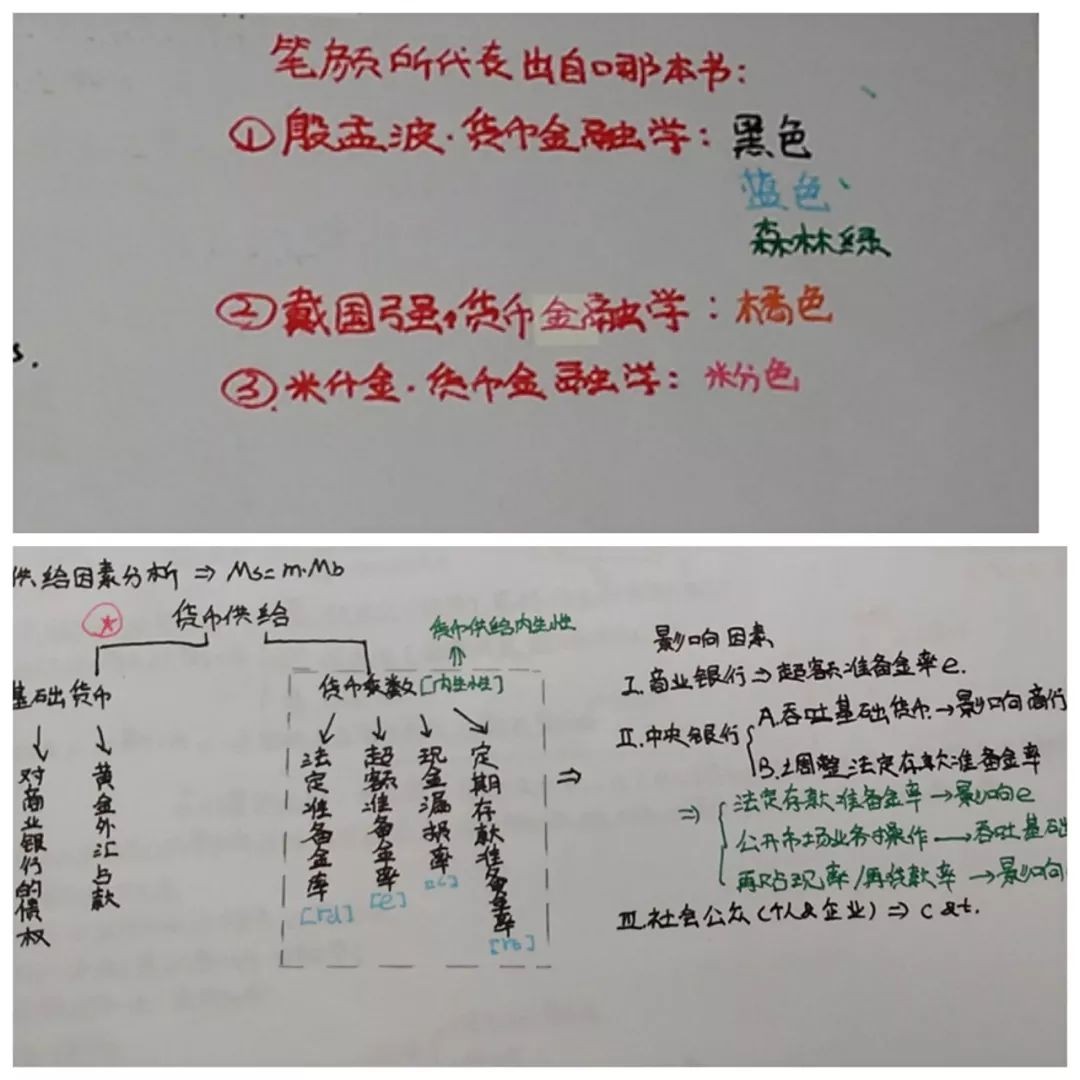 笔颜所代表出自哪本书:
①殷孟波·货币金融学:黑色
蓝色
森林绿
②戴国强·货币金融学:橘色
③米什金·货币金融学:粉色
s.
供给因素分析 ⇒ Ms=m·Mb
货币供给
货币供给内生性
基础货币
货币乘数[内生性]
对商业银行的债权
黄金外汇占款
法定准备金率
[rd]
超额准备金率
[e]
现金漏损率
[c]
定期存款准备金率
[rt]
影响因素
I.商业银行⇒超额准备金率e.
II.中央银行
A.吞吐基础货币→影响商行
B.调整法定存款准备金率
⇒
法定存款准备金率→影响e
公开市场业务操作→吞吐基础
再贴现率/再贷款率→影响
III.社会公众(个人&企业)⇒c&t.